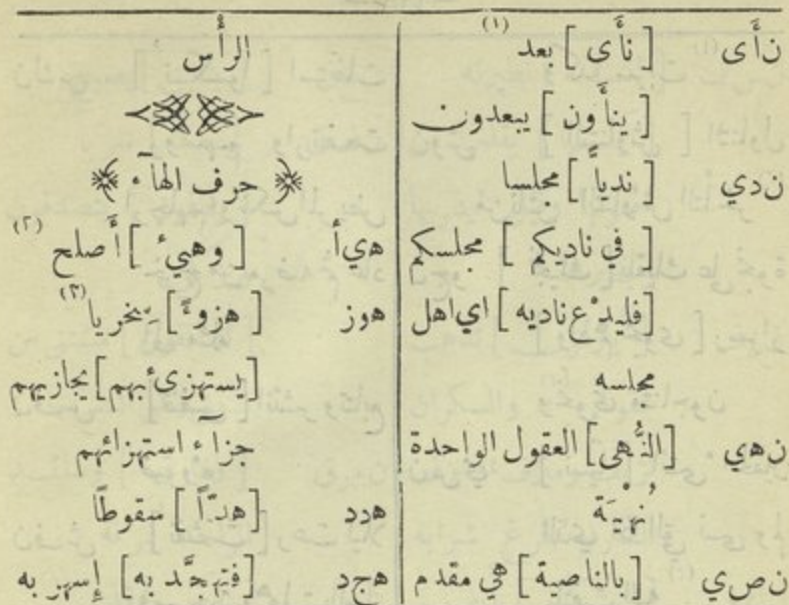 نأى [نأى] بعد (١)
[ينأون] يبعدون
ندي [ندياً] مجلسا
[في ناديكم] مجلسكم
[فليدْع ناديه] اي اهل
مجلسه
نهي [النُّهى] العقول الواحدة
نُهْيَة
نصي [بالناصية] هي مقدم
الرأس
حرف الهآء
هيأ [وهيء] أصلح (٢)
هوز [هزوءً] سخريا (٣)
[يستهزىء بهم] يجازيهم
جزآء استهزائهم
هدد [هدّاً] سقوطًا
هجد [فتهجَّد به] إسهر به